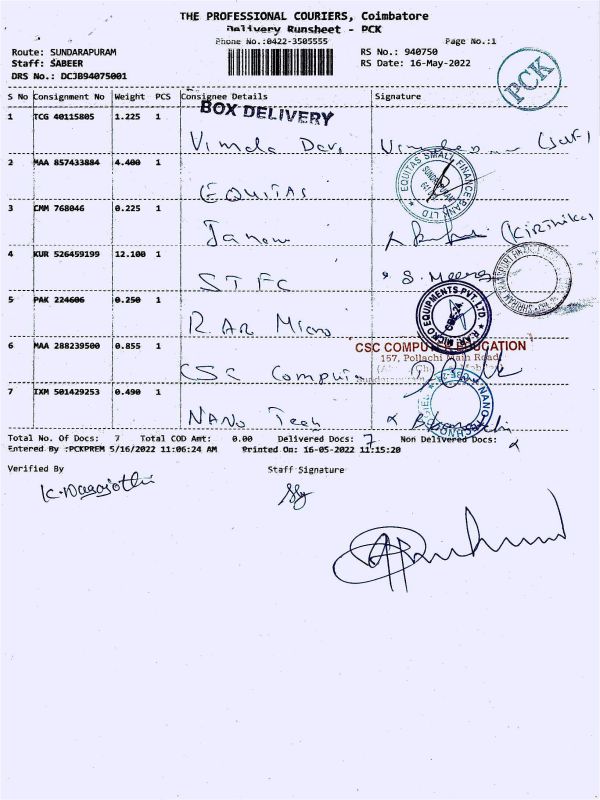 THE PROFESSIONAL COURIERS, Coimbatore
Delivery Runsheet - PCK
Phone No.:0422-3505555
Page No.:1
Route: SUNDARAPURAM
RS No.: 940750
Staff: SABEER
RS Date: 16-May-2022
DRS No.: DCJB94075001
PCK
S No Consignment No Weight PCS Consignee Details Signature
BOX DELIVERY
1 TCG 40115805 1.225 1
Vimala Devi
2 MAA 857433884 4.400 1
EQUITAS
EQUITAS SMALL FINANCE BANK LTD
3 CMM 768046 0.225 1
4 KUR 526459199 12.100 1
STFC
S. Meera
5 PAK 224606 0.250 1
R.AR Micro
R.AR. MICRO EQUIPMENTS PVT. LTD.
6 MAA 288239500 0.855 1
CSC COMPUTER EDUCATION
157, Pollachi Main Road
CSC Computer
7 IXM 501429253 0.490 1
NANO Tech
Total No. Of Docs: 7 Total COD Amt: 0.00 Delivered Docs: 7 Non Delivered Docs:
Entered By :PCKPREM 5/16/2022 11:06:24 AM Printed On: 16-05-2022 11:15:20
Verified By Staff Signature